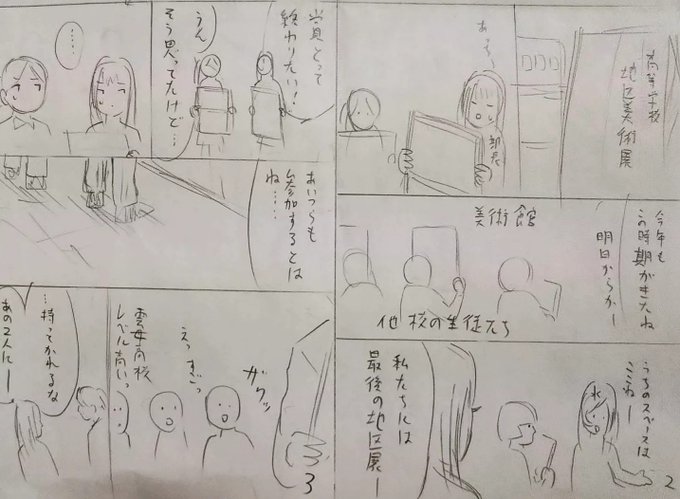 高等学校
地区美術展
あっち〜
部長
今年も
この時期がきたね
明日からかー
美術館
他校の生徒たち
うちのスペースは
ここねー
私たちには
最後の地区展ー
2
賞とって
終わりたい!
うん
そう思ってたけど…
……
あいつらも
参加するとは
ね……
ザワッ
えっすごっ
雲母高校
レベル高いっ
…持ってかれるな
あの2人にー
3